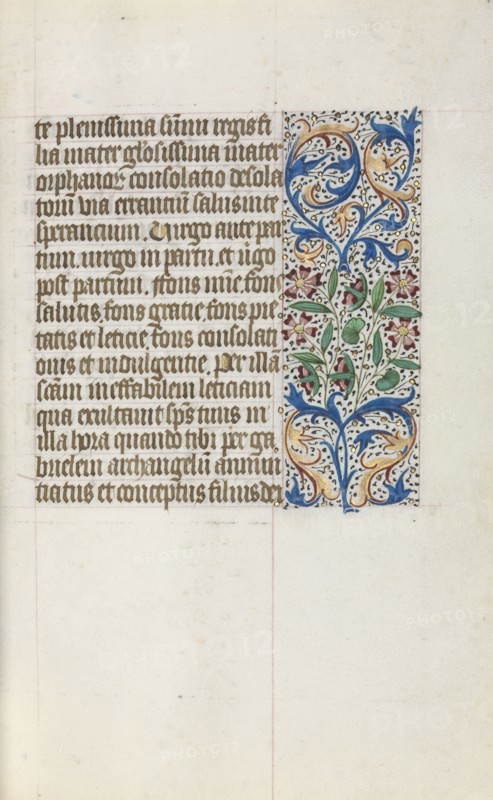 te plenissima su̅mi regis fi
lia mater gl̅osissima mater
orphanoꝝ consolatio desola
toru̅ via errantiu̅ salus in te
sperancium. Uirgo ante par
tum. uirgo in partu. et u̅go
post partum. ffons mi̅e. fons
salutis. fons gratie. fons pie
tatis et leticie. fons consolati
onis et indulgentie. Per illa̅
sc̅am ineffabilem leticiam
qua exultauit sp̅s tuus in
illa hora quando tibi per ga
brielem archangelu̅ annun
tiatus et conceptus filius dei